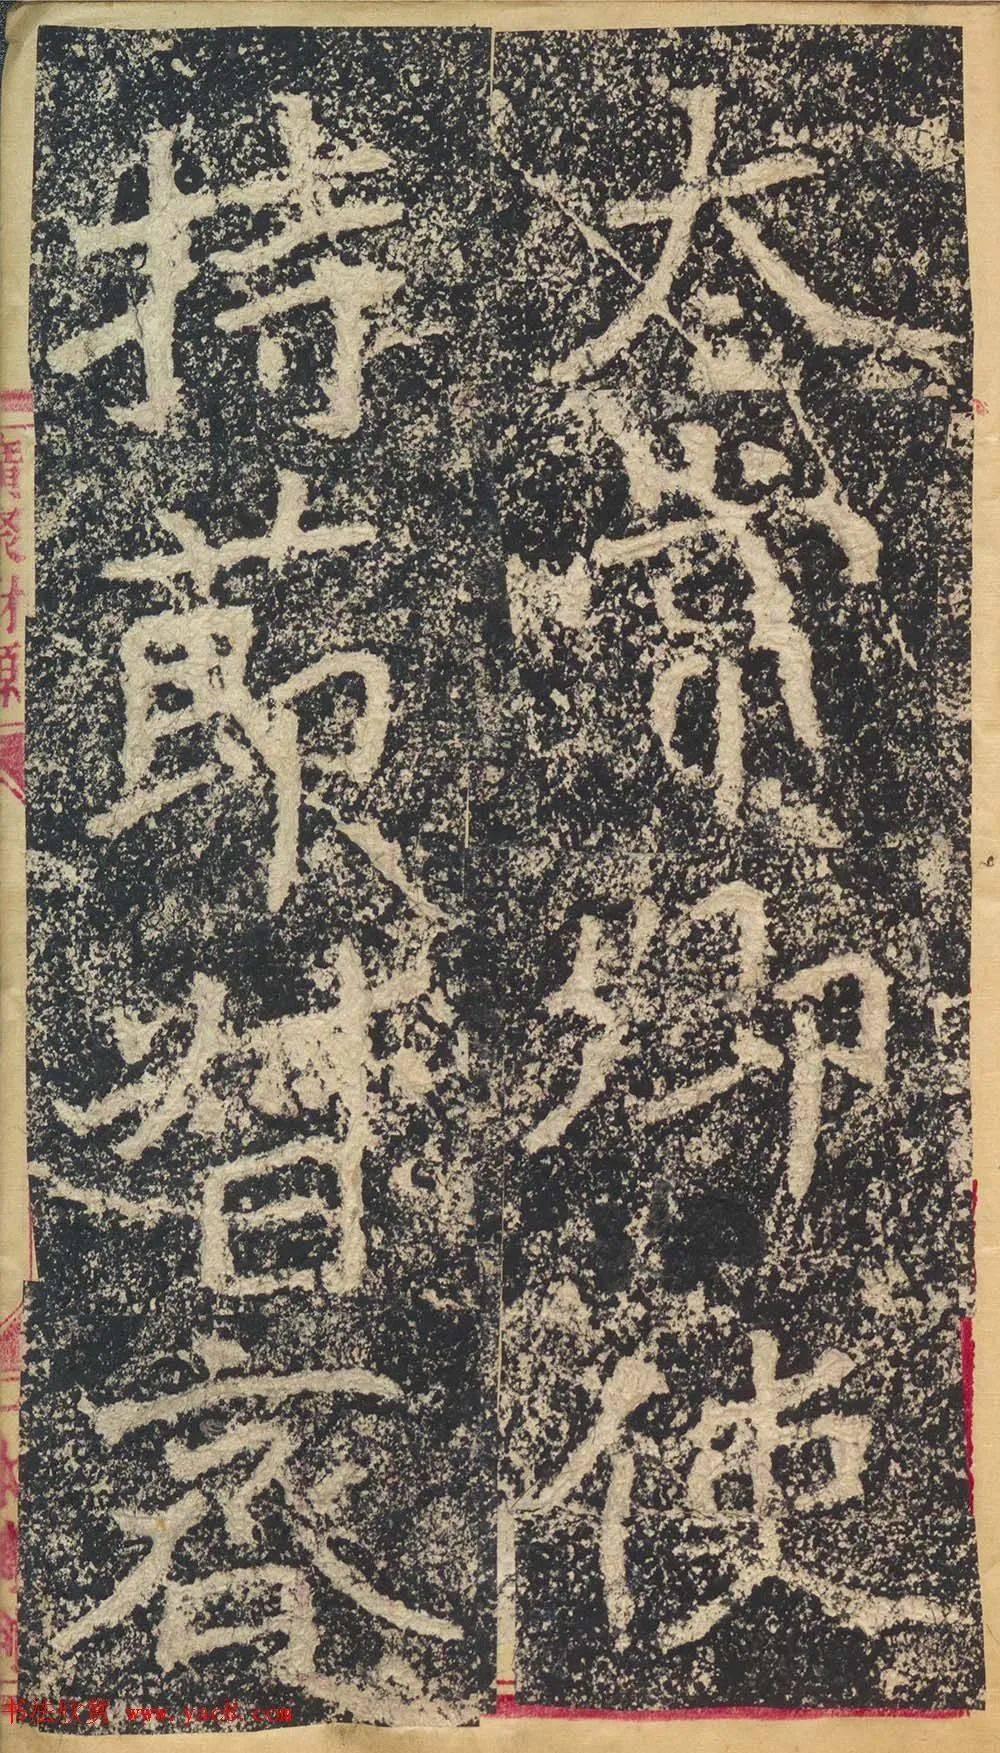 太常卿使
持節督齊
书法欣赏 www.yac8.com